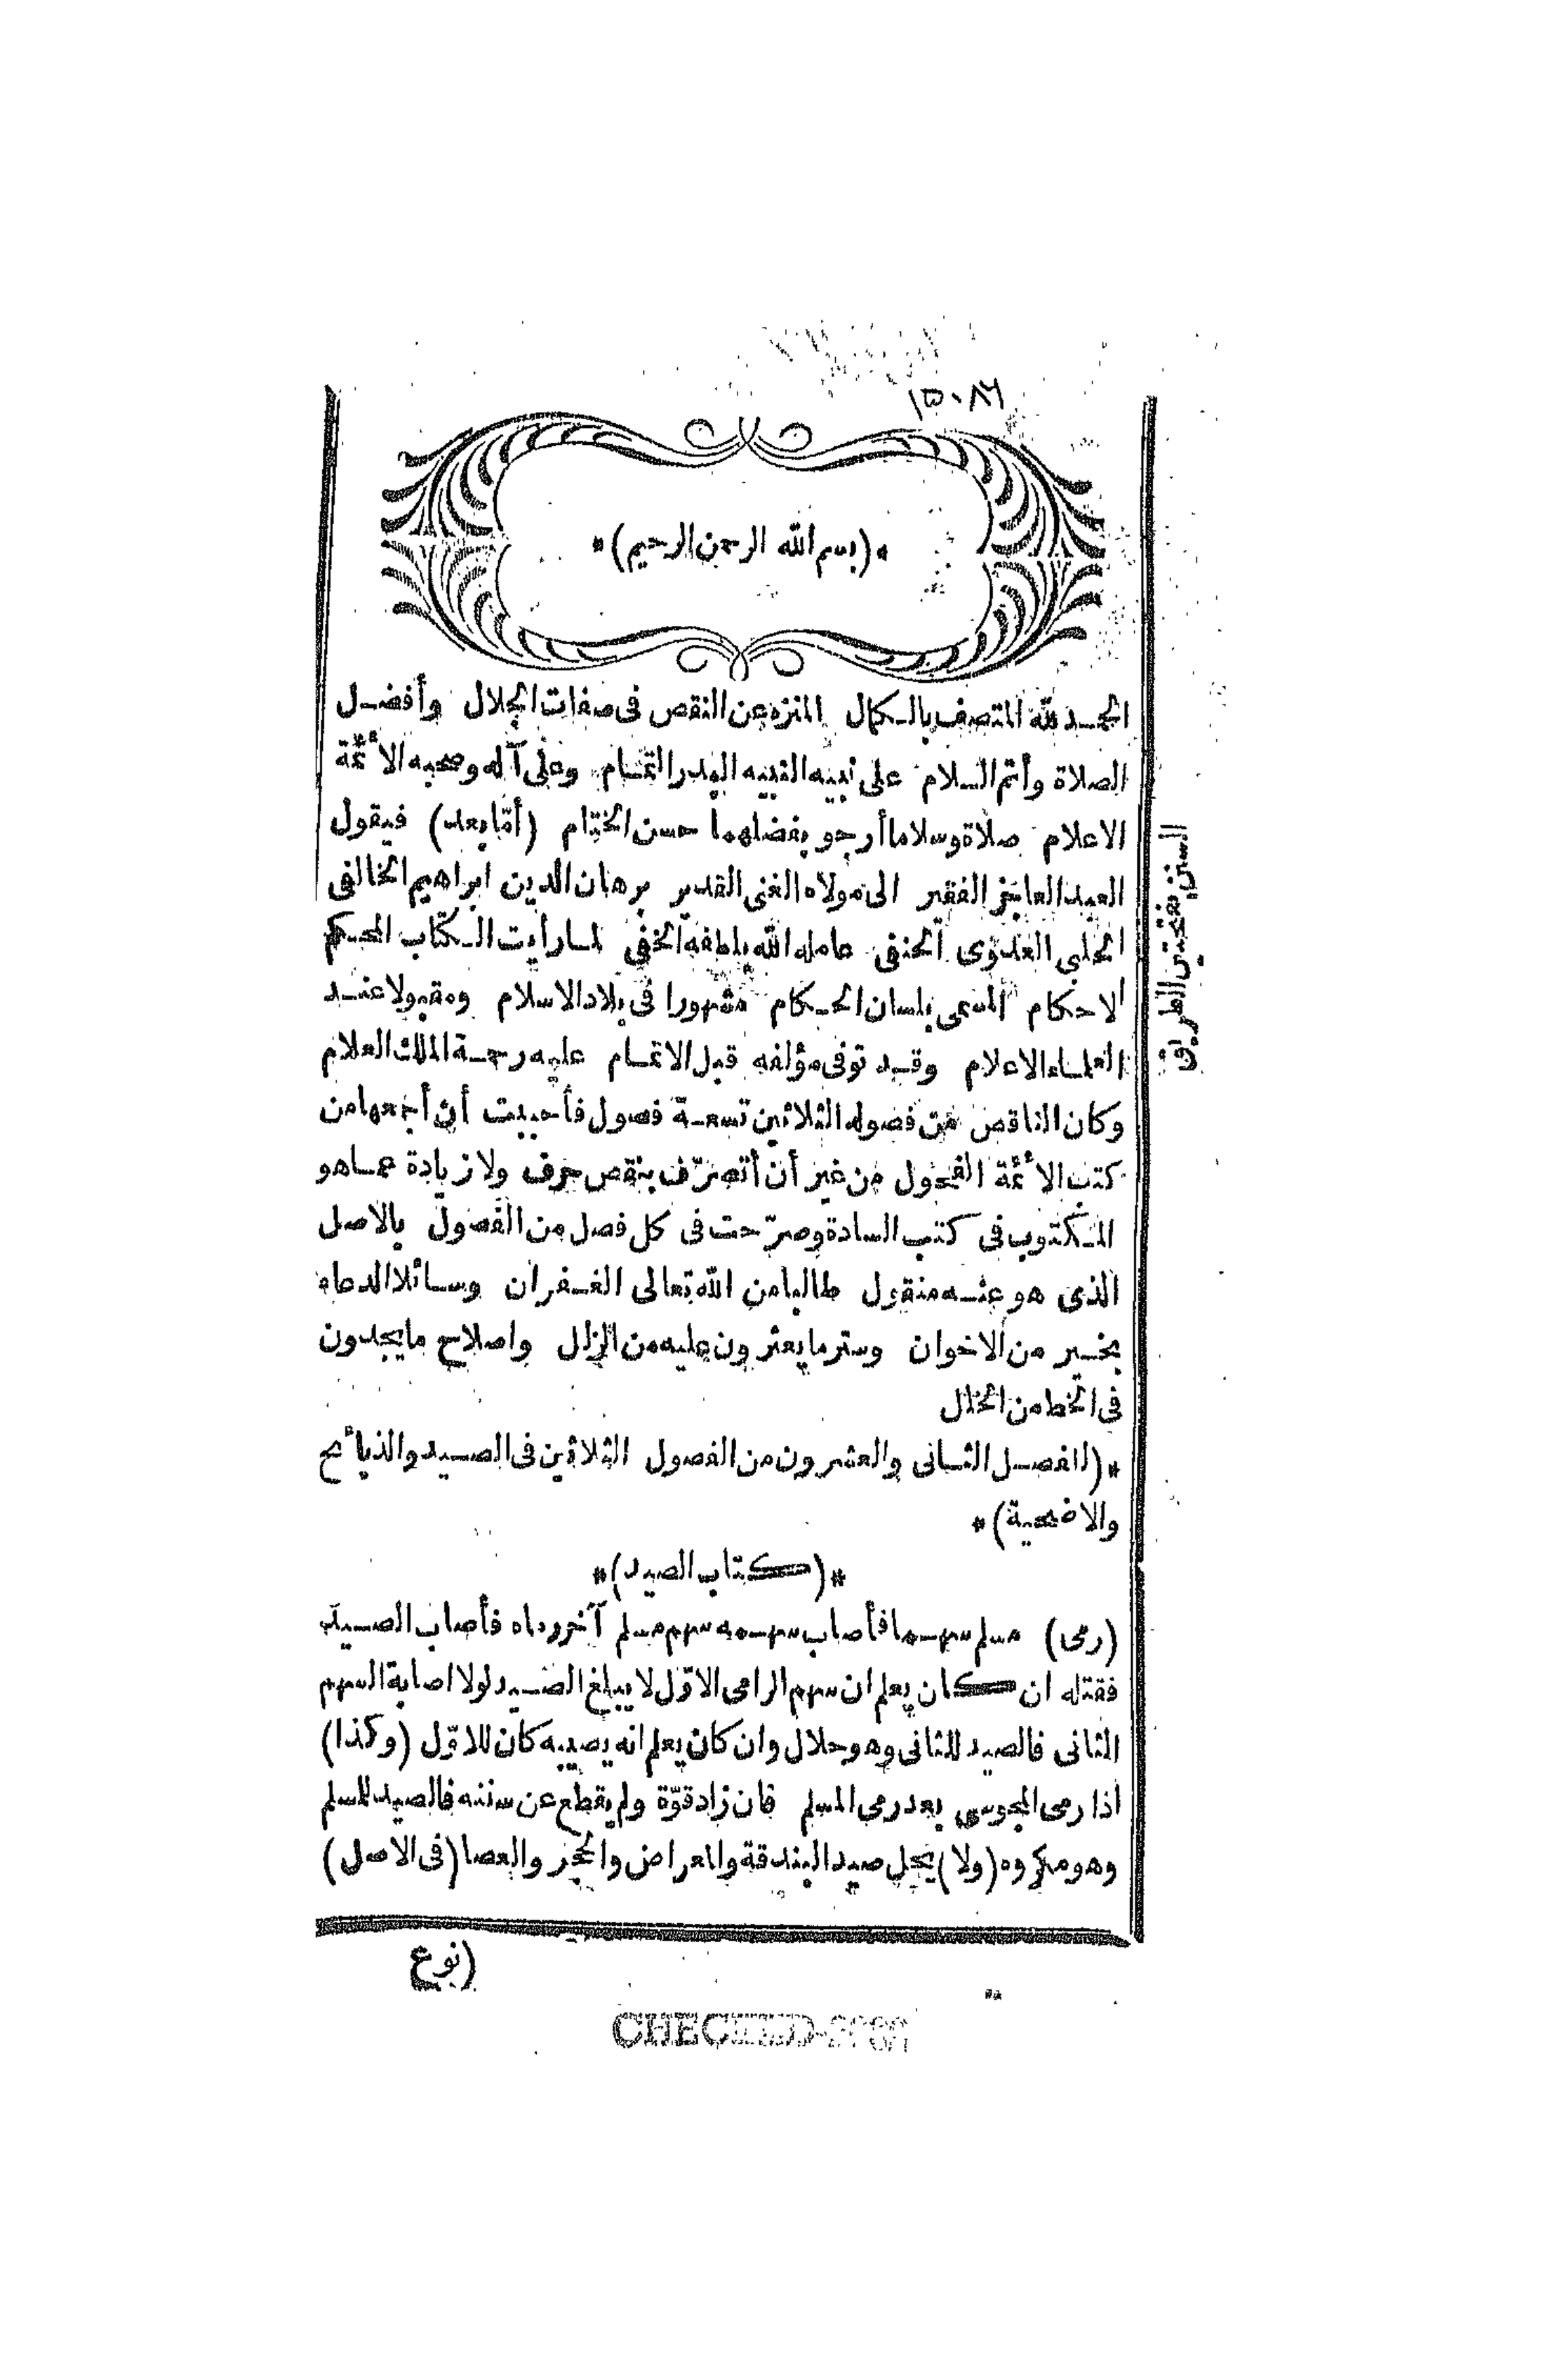 ١٥٠٨٦
*(بسم الله الرحمن الرحيم)*
الحمد لله المتصف بالكمال المنزه عن النقص فى صفات الجلال وأفضل
الصلاة وأتم السلام على نبيه النبيه البدر التمام وعلى آله وصحبه الأئمّة
الاعلام صلاة وسلاما أرجو بفضلهما حسن الختام (أمّا بعد) فيقول
العبد العاجز الفقير الى مولاه الغنى القدير برهان الدين ابراهيم الخالفى
الحلبى العدوى الحنفى عامله الله بلطفه الخفى لما رأيت الكتاب المحكم
الاحكام المسمى بلسان الحكام مشهورا فى بلاد الاسلام ومقبولا عند
العلماء الاعلام وقد توفى مؤلفه قبل الاتمام عليه رحمة الملك العلام
وكان الناقص من فصوله الثلاثين تسعة فصول فأحببت أن أجمعها من
كتب الأئمّة الفحول من غير أن أتصرّف بنقص حرف ولا زيادة عما هو
المكتوب فى كتب السادة وصرّحت فى كل فصل من الفصول بالاصل
الذى هو عنه منقول طالبا من الله تعالى الغفران وسائلا الدعاء
بخير من الاخوان وستر ما يعثرون عليه من الزلل واصلاح ما يجدون
فى الخط من الخلل
*(الفصل الثانى والعشرون من الفصول الثلاثين فى الصيد والذبائح
والاضحية)*
*(كتاب الصيد)*
(رمى) مسلم سهما فأصاب سهمه سهم مسلم آخر رماه فأصاب الصيد
فقتله ان كان يعلم ان سهم الرامى الاوّل لا يبلغ الصيد لولا اصابة السهم
الثانى فالصيد للثانى وهو حلال وان كان يعلم انه يصيبه كان للاوّل (وكذا)
اذا رمى المجوسى بعد رمى المسلم فان زاد قوّة ولم يقطع عن سننه فالصيد للمسلم
وهو مكروه (ولا) يحل صيد البندقة والمعراض والحجر والعصا (فى الاصل)
السنن بفتحتين الطريق
(نوع
CHECKED